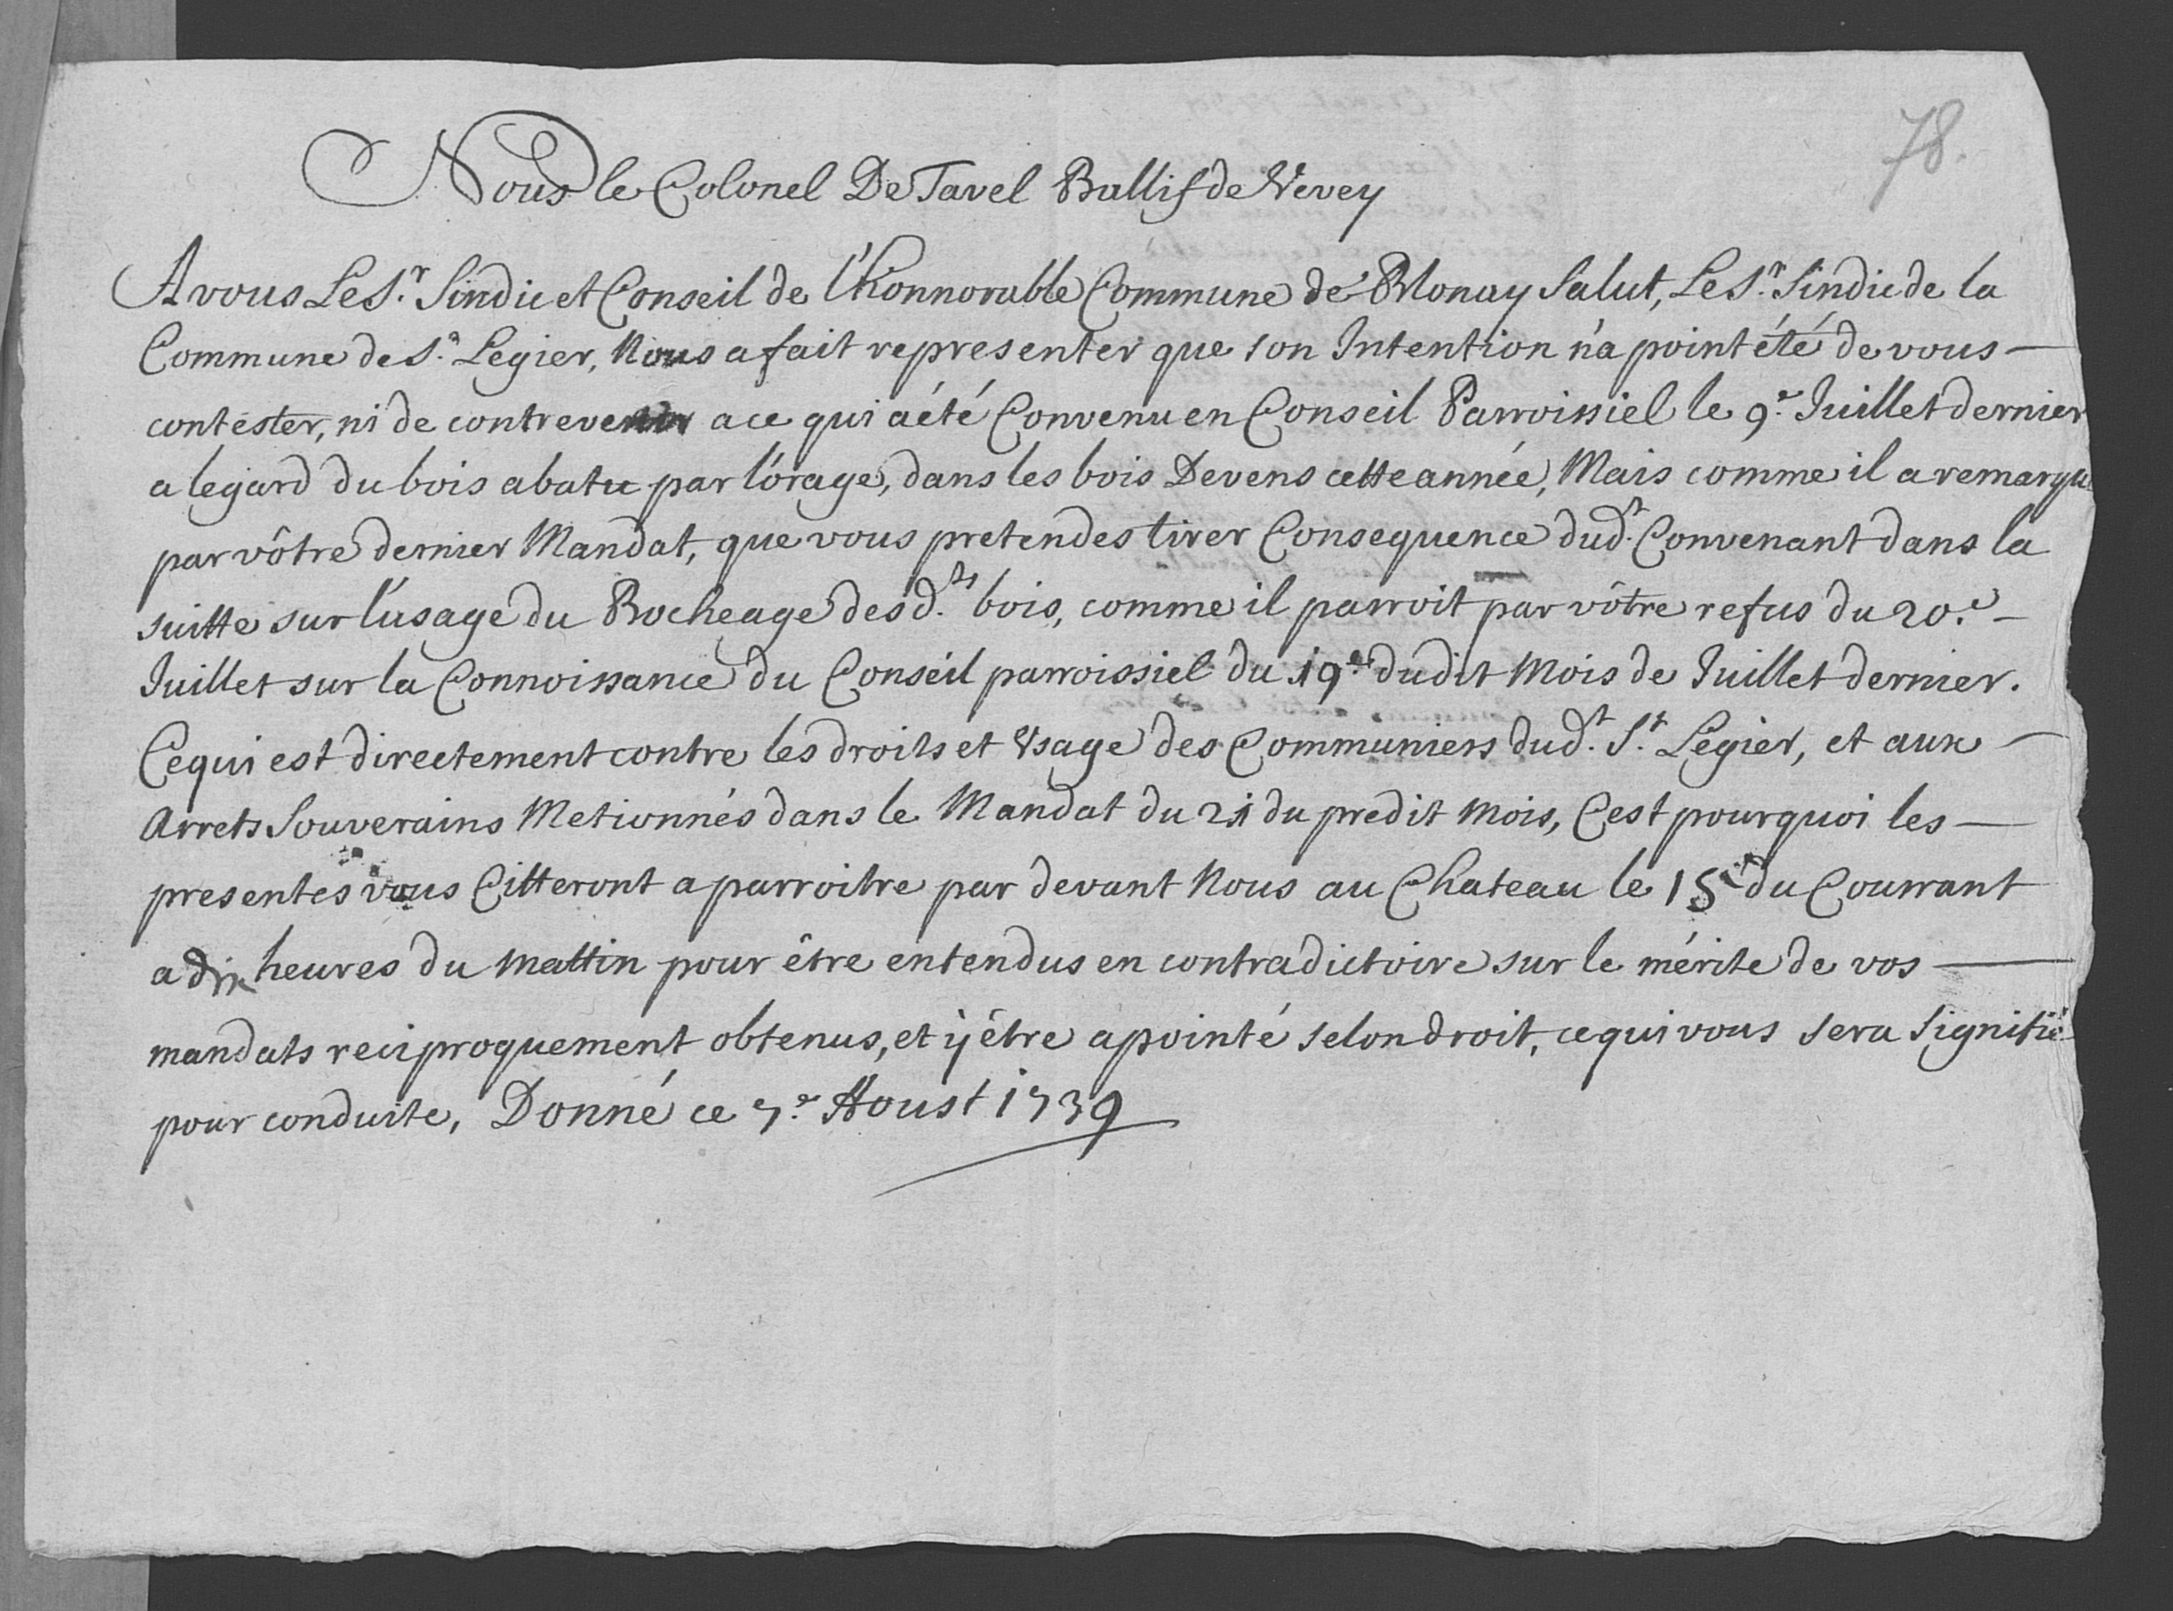 78.
Nous le Colonel De Tavel Ballif de Vevey
A vous Le S.r Sindic et Conseil de l'honnorable Commune de Blonay Salut, Le S.r Sindic de la
Commune de S.t Legier, Nous a fait representer que son Intention n'a point été de vous —
contester, ni de contrevenir a ce qui a été Convenu en Conseil Parroissiel le 9.e Juillet dernier
a legard du bois abatu par l'orage, dans les bois Devens cette année, Mais comme il a remarqué
par vôtre dernier Mandat, que vous pretendes tirer Consequence dud.t Convenant dans la
suitte sur l'usage du Bocheage desd.ts bois, comme il parroit par vôtre refus du 20.e —
Juillet sur la Connoissance du Conseil parroissiel du 19.e dudit Mois de Juillet dernier.
Ce qui est directement contre les droits et Usage des Communiers dud.t S.t Legier, et aux —
Arrets Souverains Metionnés dans le Mandat du 21 du predit Mois, C'est pourquoi les —
presentes vous Citteront a parroitre par devant Nous au Chateau le 15 du Courrant
a dix heures du Mattin pour être entendus en contradictoire sur le mérite de vos —
mandats reciproquement obtenus, et ÿ être apointé selon droit, ce qui vous sera signifié
pour conduite, Donné ce 7.e Aoust 1739